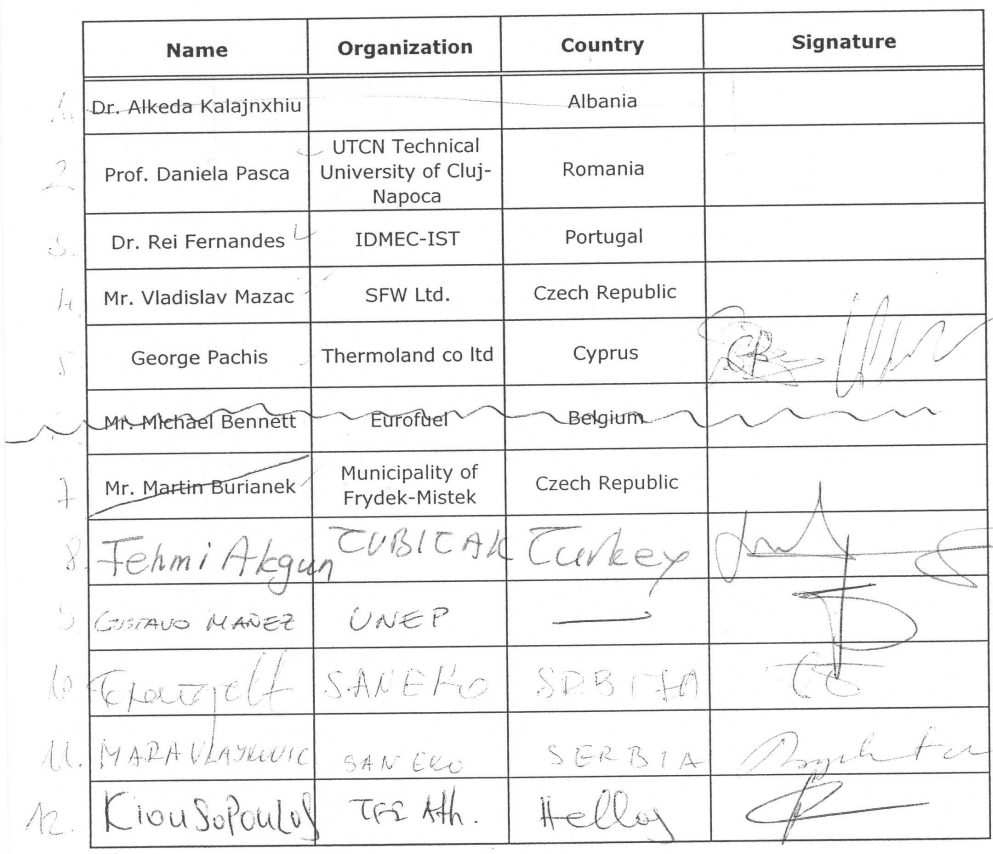 Name Organization Country Signature
1. Dr. Alkeda Kalajnxhiu Albania
2 Prof. Daniela Pasca UTCN Technical University of Cluj-Napoca Romania
3. Dr. Rei Fernandes IDMEC-IST Portugal
4. Mr. Vladislav Mazac SFW Ltd. Czech Republic
5 George Pachis Thermoland co ltd Cyprus
Mr. Michael Bennett Eurofuel Belgium
7 Mr. Martin Burianek Municipality of Frydek-Mistek Czech Republic
8. Fehmi Akgun TUBITAK Turkey
9 GUSTAVO MAÑEZ UNEP —
10 SANEKO SRBIJA
11. MARA VLAJKOVIC SANEKO SERBIA
12. Kiousopoulos Ath. Hellas